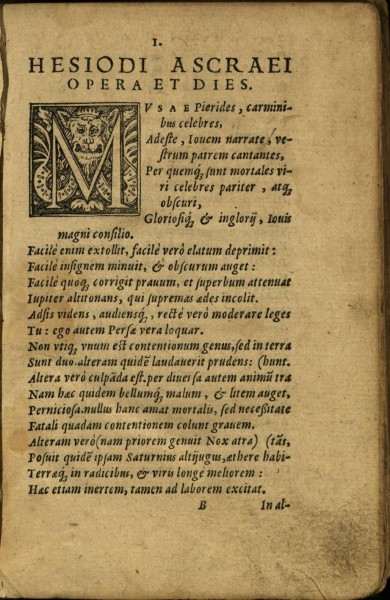 1.
HESIODI ASCRAEI
OPERA ET DIES.
MVSAE Pierides, carmini-
bus celebres,
Adeste, Iouem narrate, ve-
strum patrem cantantes,
Per quemq;, sunt mortales vi-
ri celebres pariter, atq;
obscuri,
Gloriosiq;, & inglorij, Iouis
magni consilio.
Facilè enim extollit, facilè verò elatum deprimit:
Facilè insignem minuit, & obscurum auget:
Facilè quoq; corrigit prauum, et superbum attenuat
Iupiter altitonans, qui supremas ædes incolit.
Adsis videns, audiensq;, rectè verò moderare leges
Tu: ego autem Persæ vera loquar.
Non vtiq; vnum est contentionum genus, sed in terra
Sunt duo. alteram quidē laudauerit prudens: (hunt.
Altera verò culpāda est. per diuersa autem animū tra
Nam hæc quidem bellumq; malum, & litem auget,
Perniciosa. nullus hanc amat mortalis, sed necessitate
Fatali quadam contentionem colunt grauem.
Alteram verò (nam priorem genuit Nox atra) (tās,
Posuit quidē ipsam Saturnius altijugus, æthere habi-
Terræq; in radicibus, & viris longè meliorem:
Hæc etiam inertem, tamen ad laborem excitat.
B In al-